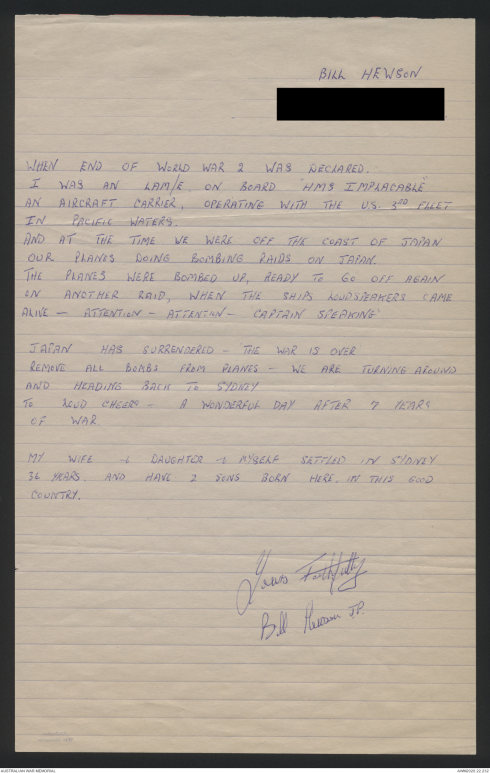 BILL HEWSON
WHEN END OF WORLD WAR 2 WAS DECLARED.
I WAS AN LAM/E ON BOARD "HMS IMPLACABLE"
AN AIRCRAFT CARRIER, OPERATING WITH THE U.S. 3RD FLEET
IN PACIFIC WATERS.
AND AT THE TIME WE WERE OFF THE COAST OF JAPAN
OUR PLANES DOING BOMBING RAIDS ON JAPAN.
THE PLANES WERE BOMBED UP, READY TO GO OFF AGAIN
ON ANOTHER RAID, WHEN THE SHIPS LOUDSPEAKERS CAME
ALIVE — ATTENTION — ATTENTION — CAPTAIN SPEAKING'
JAPAN HAS SURRENDERED — THE WAR IS OVER
REMOVE ALL BOMBS FROM PLANES — WE ARE TURNING AROUND
AND HEADING BACK TO SYDNEY
TO LOUD CHEERS — A WONDERFUL DAY AFTER 7 YEARS
OF WAR.
MY WIFE & DAUGHTER & MYSELF SETTLED IN SYDNEY
36 YEARS. AND HAVE 2 SONS BORN HERE. IN THIS GOOD
COUNTRY.
Yours Faithfully
Bill Hewson JP.
AUSTRALIAN WAR MEMORIAL